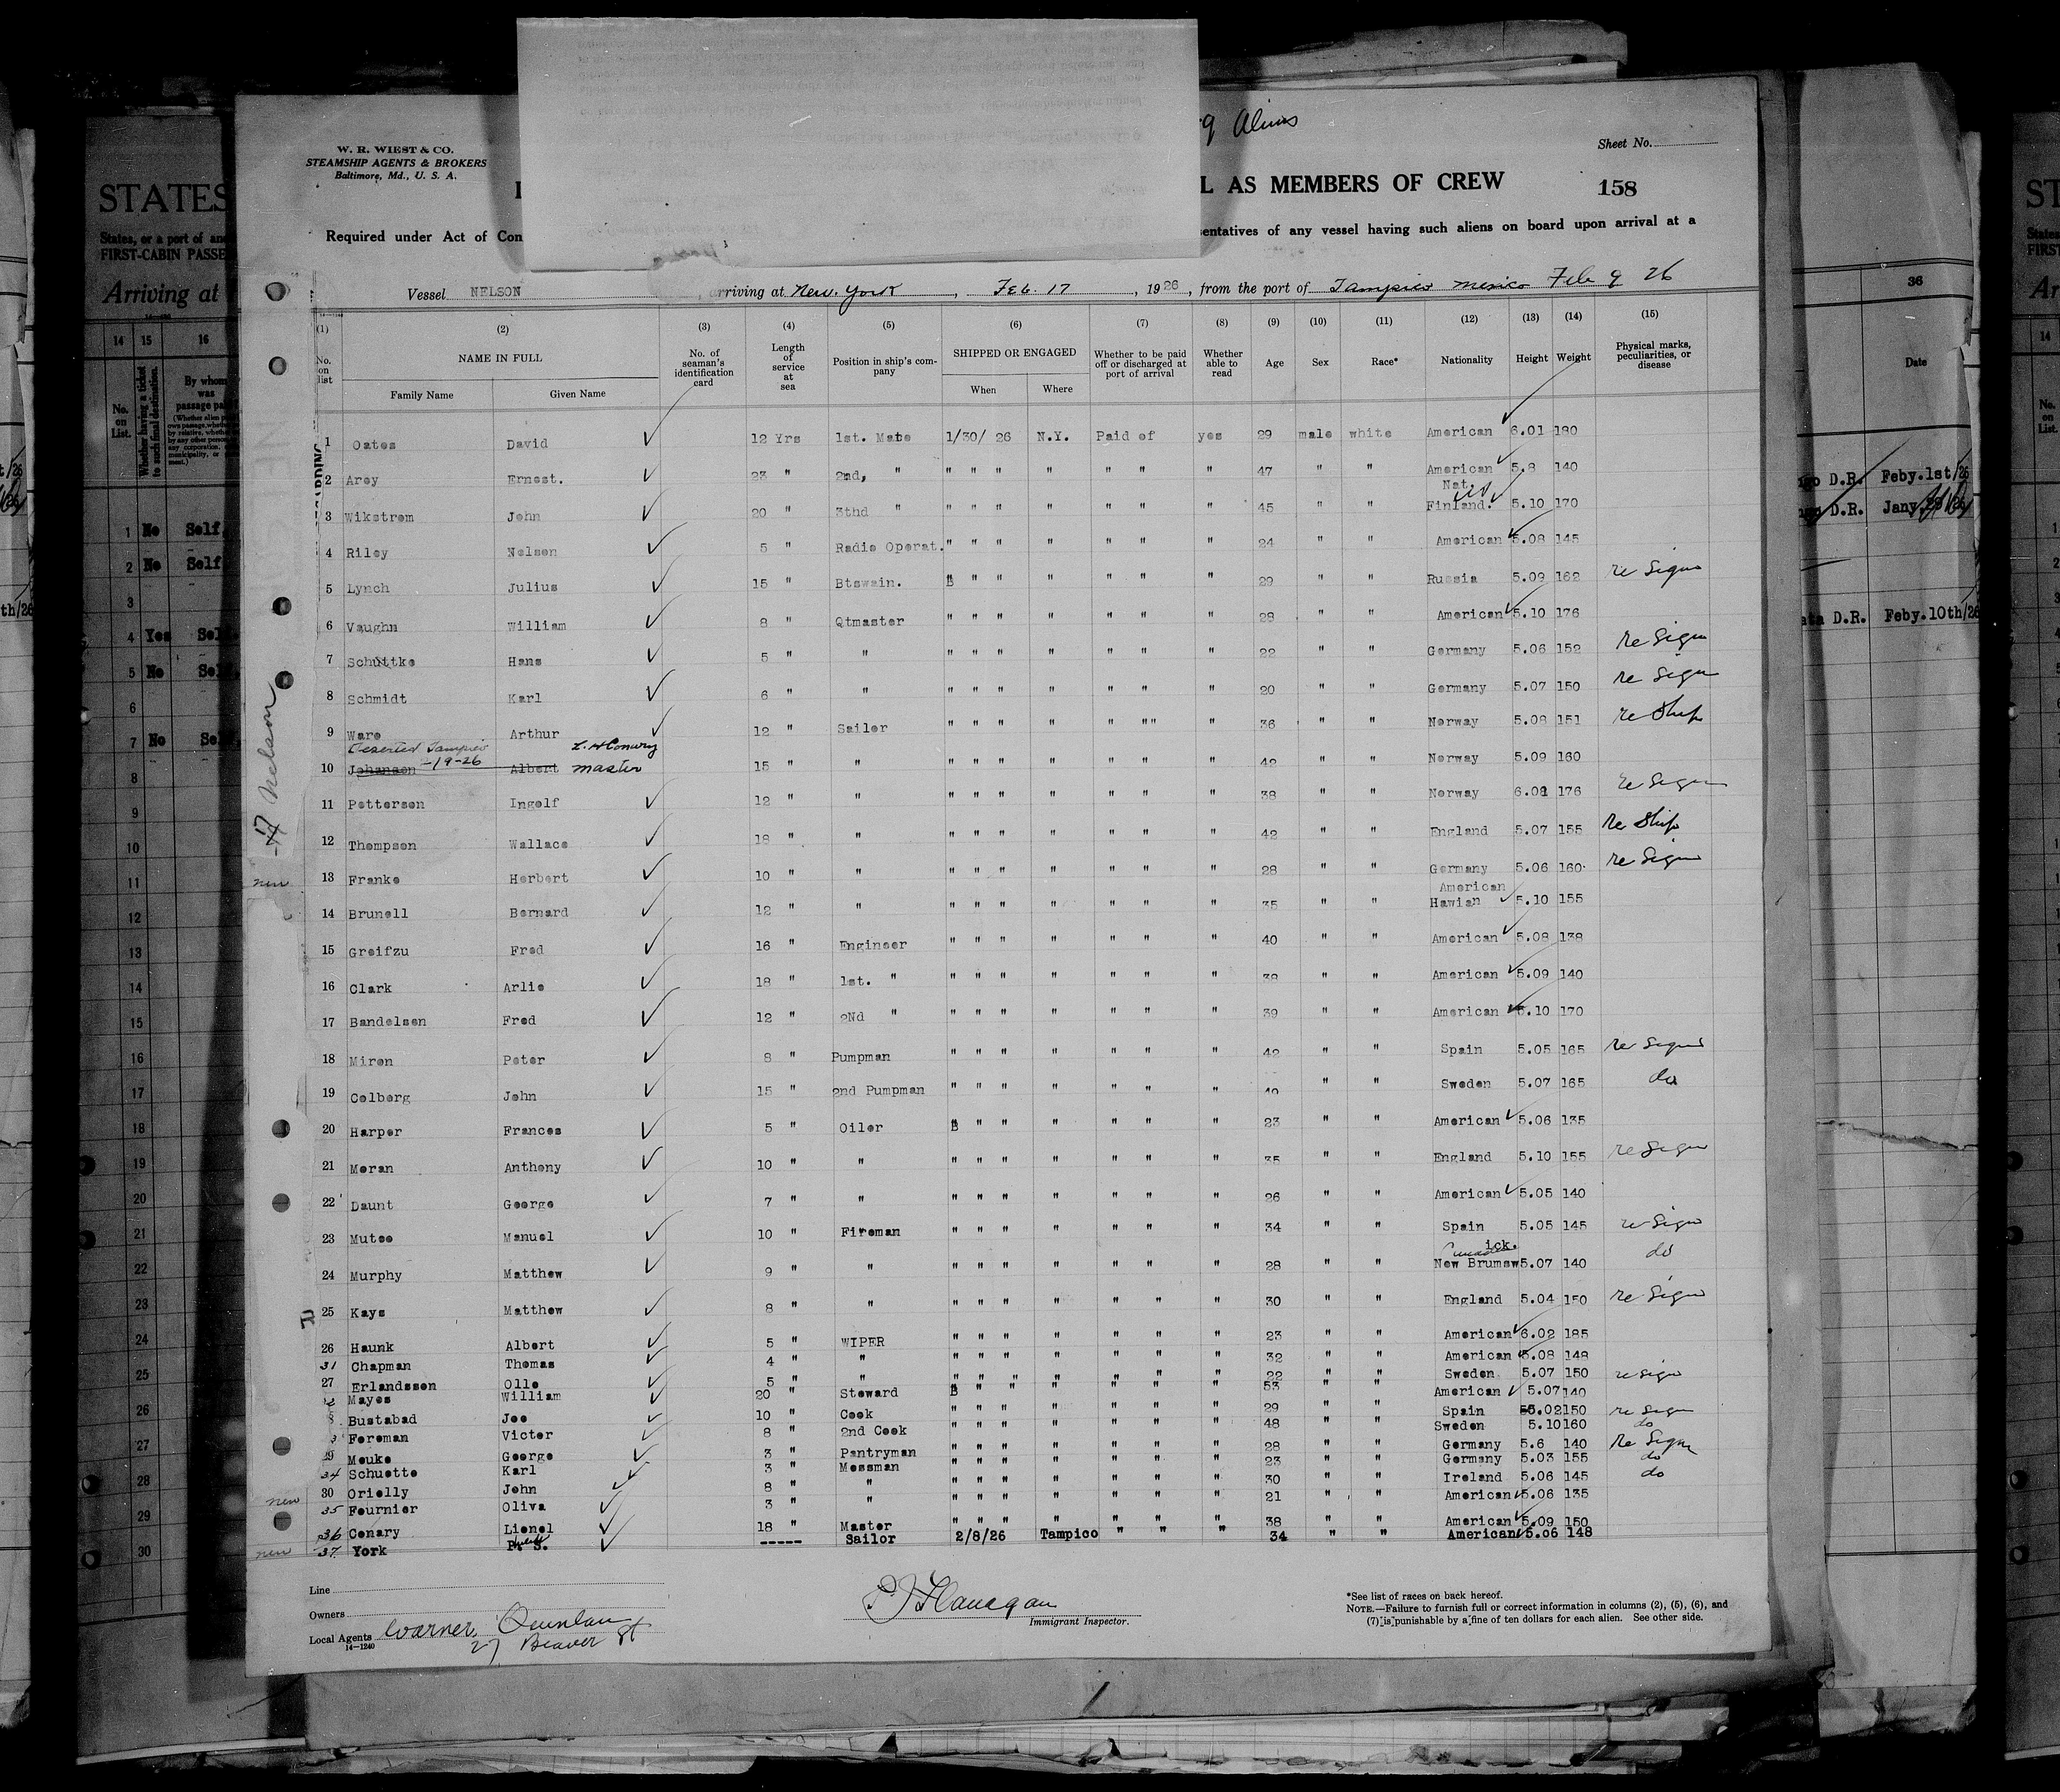 W. R. WIEST & CO.
STEAMSHIP AGENTS & BROKERS
Baltimore, Md., U. S. A.
Sheet No.
L AS MEMBERS OF CREW
158
Required under Act of Con
sentatives of any vessel having such aliens on board upon arrival at a
Vessel NELSON arriving at New York, Feb. 17, 1926, from the port of Tampico Mexico Feb 9 26
(1) (2) (3) (4) (5) (6) (7) (8) (9) (10) (11) (12) (13) (14) (15)
No. on list NAME IN FULL No. of seaman's identification card Length of service at sea Position in ship's company SHIPPED OR ENGAGED Whether to be paid off or discharged at port of arrival Whether able to read Age Sex Race* Nationality Height Weight Physical marks, peculiarities, or disease
Family Name Given Name When Where
1 Oates David 12 Yrs 1st. Mate 1/30/ 26 N.Y. Paid of yes 29 male white American 6.01 180
2 Arey Ernest. 23 " 2nd, " " " " " " " " 47 " " American 5.8 140
Nat.
3 Wikstrom John 20 " 3thd " " " " " " " " 45 " " Finland. 5.10 170
4 Riley Nelson 5 " Radio Operat. " " " " " " " 24 " " American 5.08 145
5 Lynch Julius 15 " Btswain. " " " " " " " 29 " " Russia 5.09 162 re Signs
6 Vaughn William 8 " Qtmaster " " " " " " " 28 " " American 5.10 176
7 Schuttke Hans 5 " " " " " " " " " 22 " " Germany 5.06 152 re Sign
8 Schmidt Karl 6 " " " " " " " " " 20 " " Germany 5.07 150 re Sign
9 Ware Arthur 12 " Sailor " " " " " "" " 36 " " Norway 5.08 151 re Ship
Deserted Tampico L. H Conary
-19-26 master
10 Johanson Albert 15 " " " " " " " " " 42 " " Norway 5.09 160
11 Petterson Ingolf 12 " " " " " " " " " 38 " " Norway 6.01 176 re Sign
12 Thompson Wallace 18 " " " " " " " " " 42 " " England 5.07 155 re Ship
new 13 Franke Herbert 10 " " " " " " " " " 28 " " Germany 5.06 160 re Sign
American
14 Brunell Bernard 12 " " " " " " " " " 35 " " Hawian 5.10 155
15 Greifzu Fred 16 " Engineer " " " " " " " 40 " " American 5.08 138
16 Clark Arlie 18 " 1st. " " " " " " " " 38 " " American 5.09 140
17 Bandelsen Fred 12 " 2Nd " " " " " " " " 39 " " American 5.10 170
18 Miron Peter 8 " Pumpman " " " " " " " 42 " " Spain 5.05 165 re Signs
19 Colberg John 15 " 2nd Pumpman " " " " " " " 40 " " Sweden 5.07 165 do
20 Harper Frances 5 " Oiler " " " " " " " 23 " " American 5.06 135
21 Moran Anthony 10 " " " " " " " " " 35 " " England 5.10 155 re Sign
22 Daunt George 7 " " " " " " " " " 26 " " American 5.05 140
23 Mutoo Manuel 10 " Fireman " " " " " " " 34 " " Spain 5.05 145 re Sign
Canada ick.
24 Murphy Matthew 9 " " " " " " " " " 28 " " New Brumsw 5.07 140 do
25 Kays Matthew 8 " " " " " " " " " 30 " " England 5.04 150 re Sign
26 Haunk Albert 5 " WIPER " " " " " " " 23 " " American 6.02 185
31 Chapman Thomas 4 " " " " " " " " " 32 " " American 5.08 148
27 Erlandsson Olle 5 " " " " " " " " " 22 " " Sweden 5.07 150 re sign
Mayes William 20 " Steward " " " " " " " 53 " " American 5.07 140
Bustabad Joe 10 " Cook " " " " " " " 29 " " Spain 5.02 150 re Sign
Foreman Victor 8 " 2nd Cook " " " " " " " 48 " " Sweden 5.10 160 do
29 Mouke George 3 " Pantryman " " " " " " " 28 " " Germany 5.6 140 re Sign
34 Schuette Karl 3 " Messman " " " " " " " 23 " " Germany 5.03 155 do
30 Orielly John 8 " " " " " " " " " 30 " " Ireland 5.06 145 do
new 35 Fournier Oliva 3 " " " " " " " " " 21 " " American 5.06 135
36 Conary Lionel 18 " Master " " " " " " " 38 " " American 5.09 150
new 37 York P. S. ----- Sailor 2/8/26 Tampico " " " 34 " " American 5.06 148
Line
Owners
Local Agents Warner Quinlan
27 Beaver St
14—1240
P J Flanagan
Immigrant Inspector.
*See list of races on back hereof.
NOTE.—Failure to furnish full or correct information in columns (2), (5), (6), and
(7) is punishable by a fine of ten dollars for each alien. See other side.
STATES
States, or a port of an
FIRST-CABIN PASSE
Arriving at
14 15 16
No. on List.
Whether having a ticket to such final destination.
By whom was passage pa
1 No Self
2 No Self
3
4 Yes Sel
5 No Sel
6
7 No Se
8
9
10
11
12
13
14
15
16
17
18
19
20
21
22
23
24
25
26
27
28
29
30
36
Date
D.R. Feby.1st/26
D.R. Jany
D.R. Feby.10th/26